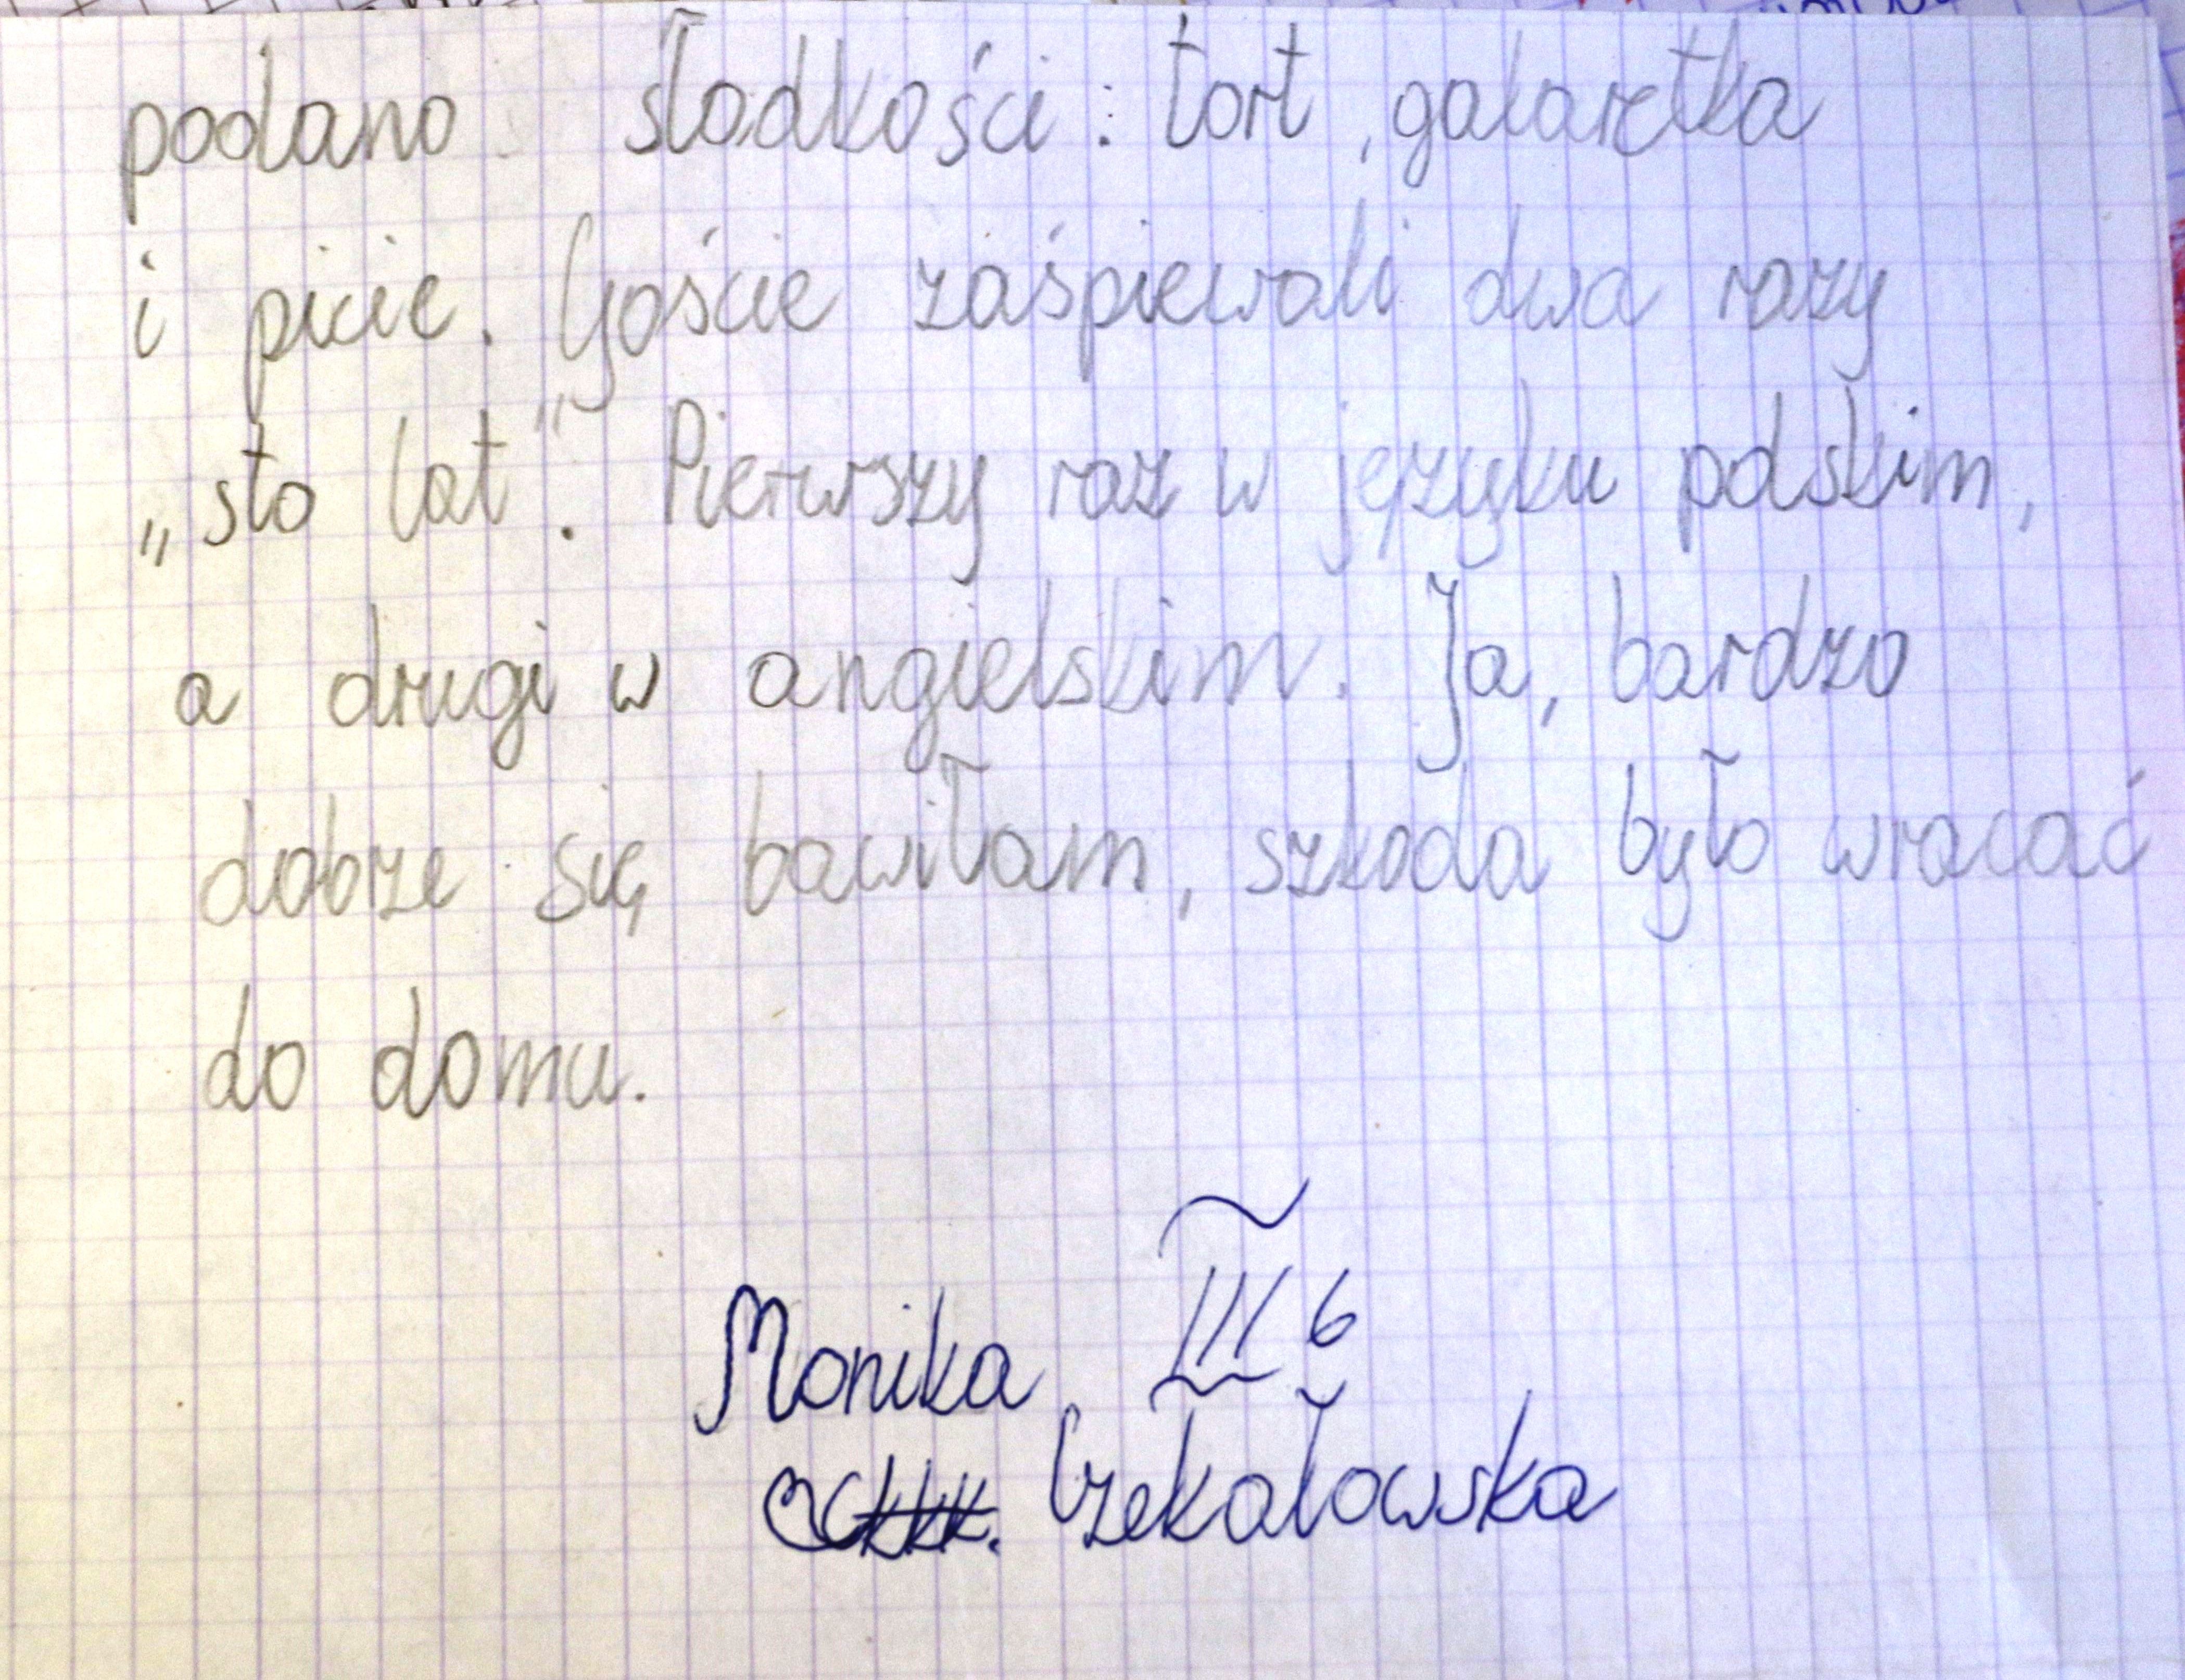 podano słodkości: tort, galaretka
i picie. Goście zaśpiewali dwa razy
„sto lat". Pierwszy raz w języku polskim,
a drugi w angielskim. Ja, bardzo
dobrze się bawiłam, szkoda było wracać
do domu.
III b
Monika
Czekałowska